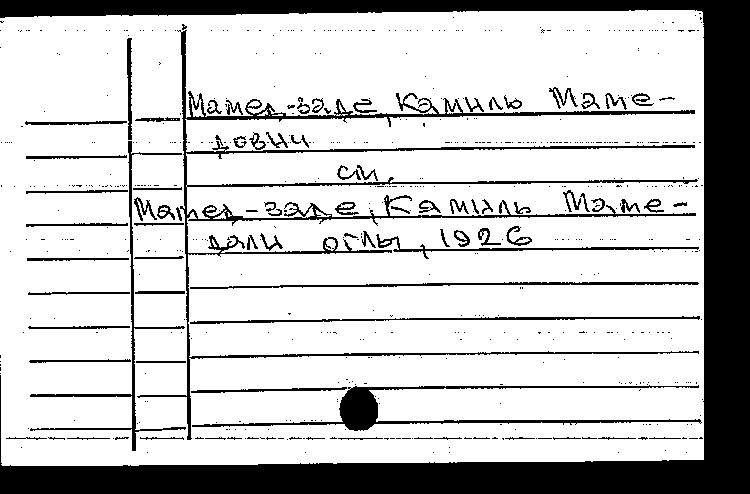 Мамед-заде, Камиль Маме-
дович
см.
Мамед-заде, Камиль Маме-
дали оглы, 1926